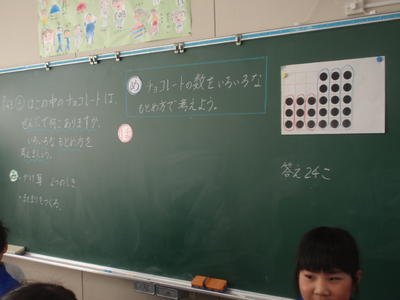 はこの中のチョコレートは、
ぜんぶで何こありますか。
いろいろなもとめ方を
考えましょう。
かけ算
・まとまりをつくる。
め
チョコレートの数をいろいろな
もとめ方で考えよう。
ほ
答え24こ